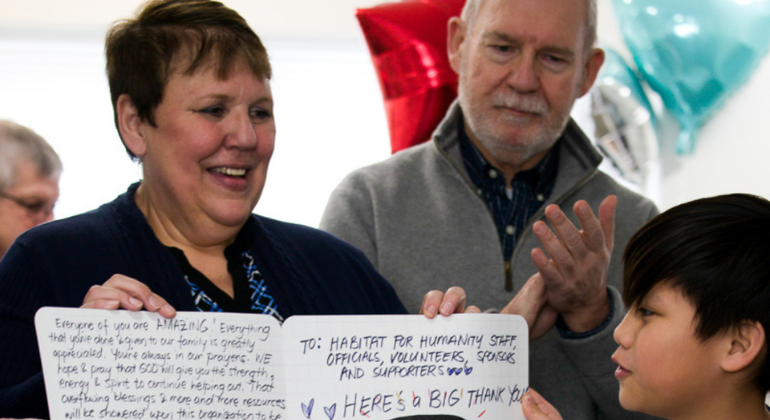 Everyone of you are AMAZING! Everything
that you've done & given to our family is greatly
appreciated. You're always in our prayers. WE
hope & pray that GOD will give you the strength,
energy & spirit to continue helping out. That
overflowing blessings & more and more resources
will be showered upon this organization to be
TO: HABITAT FOR HUMANITY STAFF,
OFFICIALS, VOLUNTEERS, SPONSORS
AND SUPPORTERS
HERE'S a BIG THANK YOU!